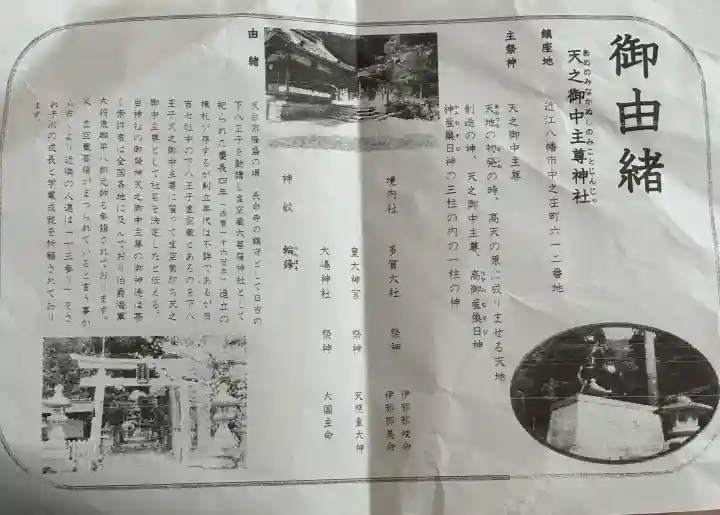 御由緒
天之御中主尊神社
あめのみなかぬしのみことじんじゃ
鎮座地
近江八幡市中之庄町六一二番地
主祭神
天之御中主尊
天地の初発の時、高天の原に成りませる天地
創造の神、天之御中主尊、高御産巣日神
神産巣日神の三柱の内の一柱の神
境内社
多賀大社
祭神
伊邪那岐命
伊邪那美命
皇大神宮
祭神
天照皇大神
大嶋神社
祭神
大国主命
神紋
輪鋒
由緒
天台宗隆盛の頃 長命寺の鎮守として日吉の
下八王子を勧請し虚空蔵大菩薩神社として
祀られた慶長四年
造立の
棟札が存するが創立年代は不詳であるが日
吉七社中の下八王子虚空蔵とあるのを下八
王子天之御中主尊に習って虚空蔵即ち天之
御中主尊として社名を決定したと伝える。
当神社の御祭神天之御中主尊の御神徳は高
く崇拝者は全国各地に及んでおり泊烏海軍
大将東郷平八郎元帥も参詣されております。
又、虚空蔵菩薩がまつられていると言う事か
ら古くより近隣の人達は「十三参り」をさ
れ子供の成長と学業成就を祈願されており
ます。